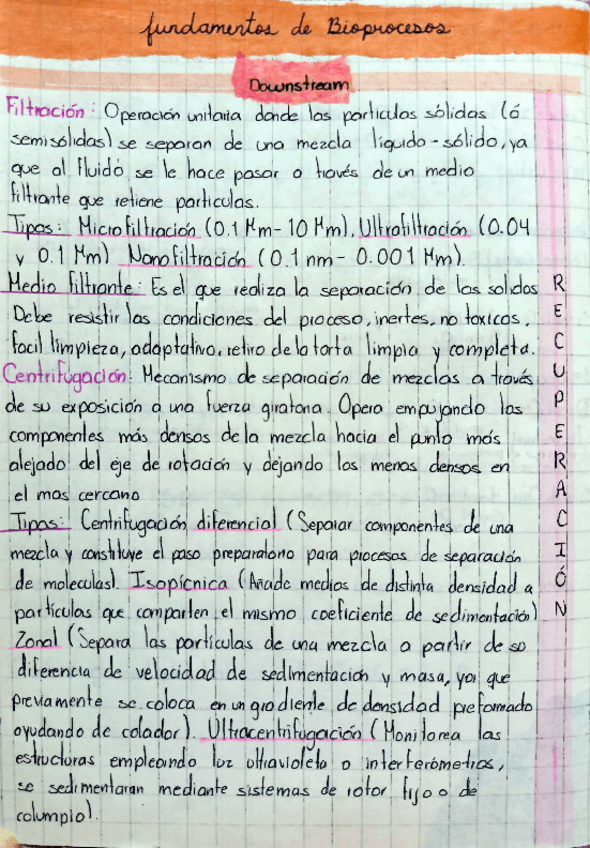 fundamentos de Bioprocesos
Downstream
Filtración: Operación unitaria donde las particulas sólidas (ó
semisólidas) se separan de una mezcla líquido-sólido, ya
que al fluido se le hace pasar a través de un medio
filtrante que retiene particulas.
Tipos: Microfiltración (0.1 Mm-10 Mm), Ultrafiltración (0.04
y 0.1 Mm) Nanofiltración (0.1 nm- 0.001 Mm).
Medio filtrante: Es el que realiza la separación de los solidos
Debe resistir las condiciones del proceso, inertes, no toxicos,
facil limpieza, adaptativo, retiro de la torta limpia y completa.
Centrifugación: Mecanismo de separación de mezclas a través
de su exposición a una fuerza giratoria. Opera empujando los
componentes más densos de la mezcla hacia el punto más
alejado del eje de rotación y dejando los menos densos en
el mas cercano
Tipos: Centrifugación diferencial (Separar componentes de una
mezcla y constituye el paso preparatorio para procesos de separación
de moleculas). Isopícnica (Añade medios de distinta densidad a
particulas que comparten el mismo coeficiente de sedimentación)
Zonal (Separa las partículas de una mezcla a partir de so
diferencia de velocidad de sedimentación y masa, ya que
previamente se coloca en un gradiente de densidad preformado
ayudando de colador). Ultracentrifugación (Monitorea las
estructuras empleando luz ultravioleta o interferómetros,
se sedimentaran mediante sistemas de rotor fijo o de
columpio).
RECUPERACIÓN